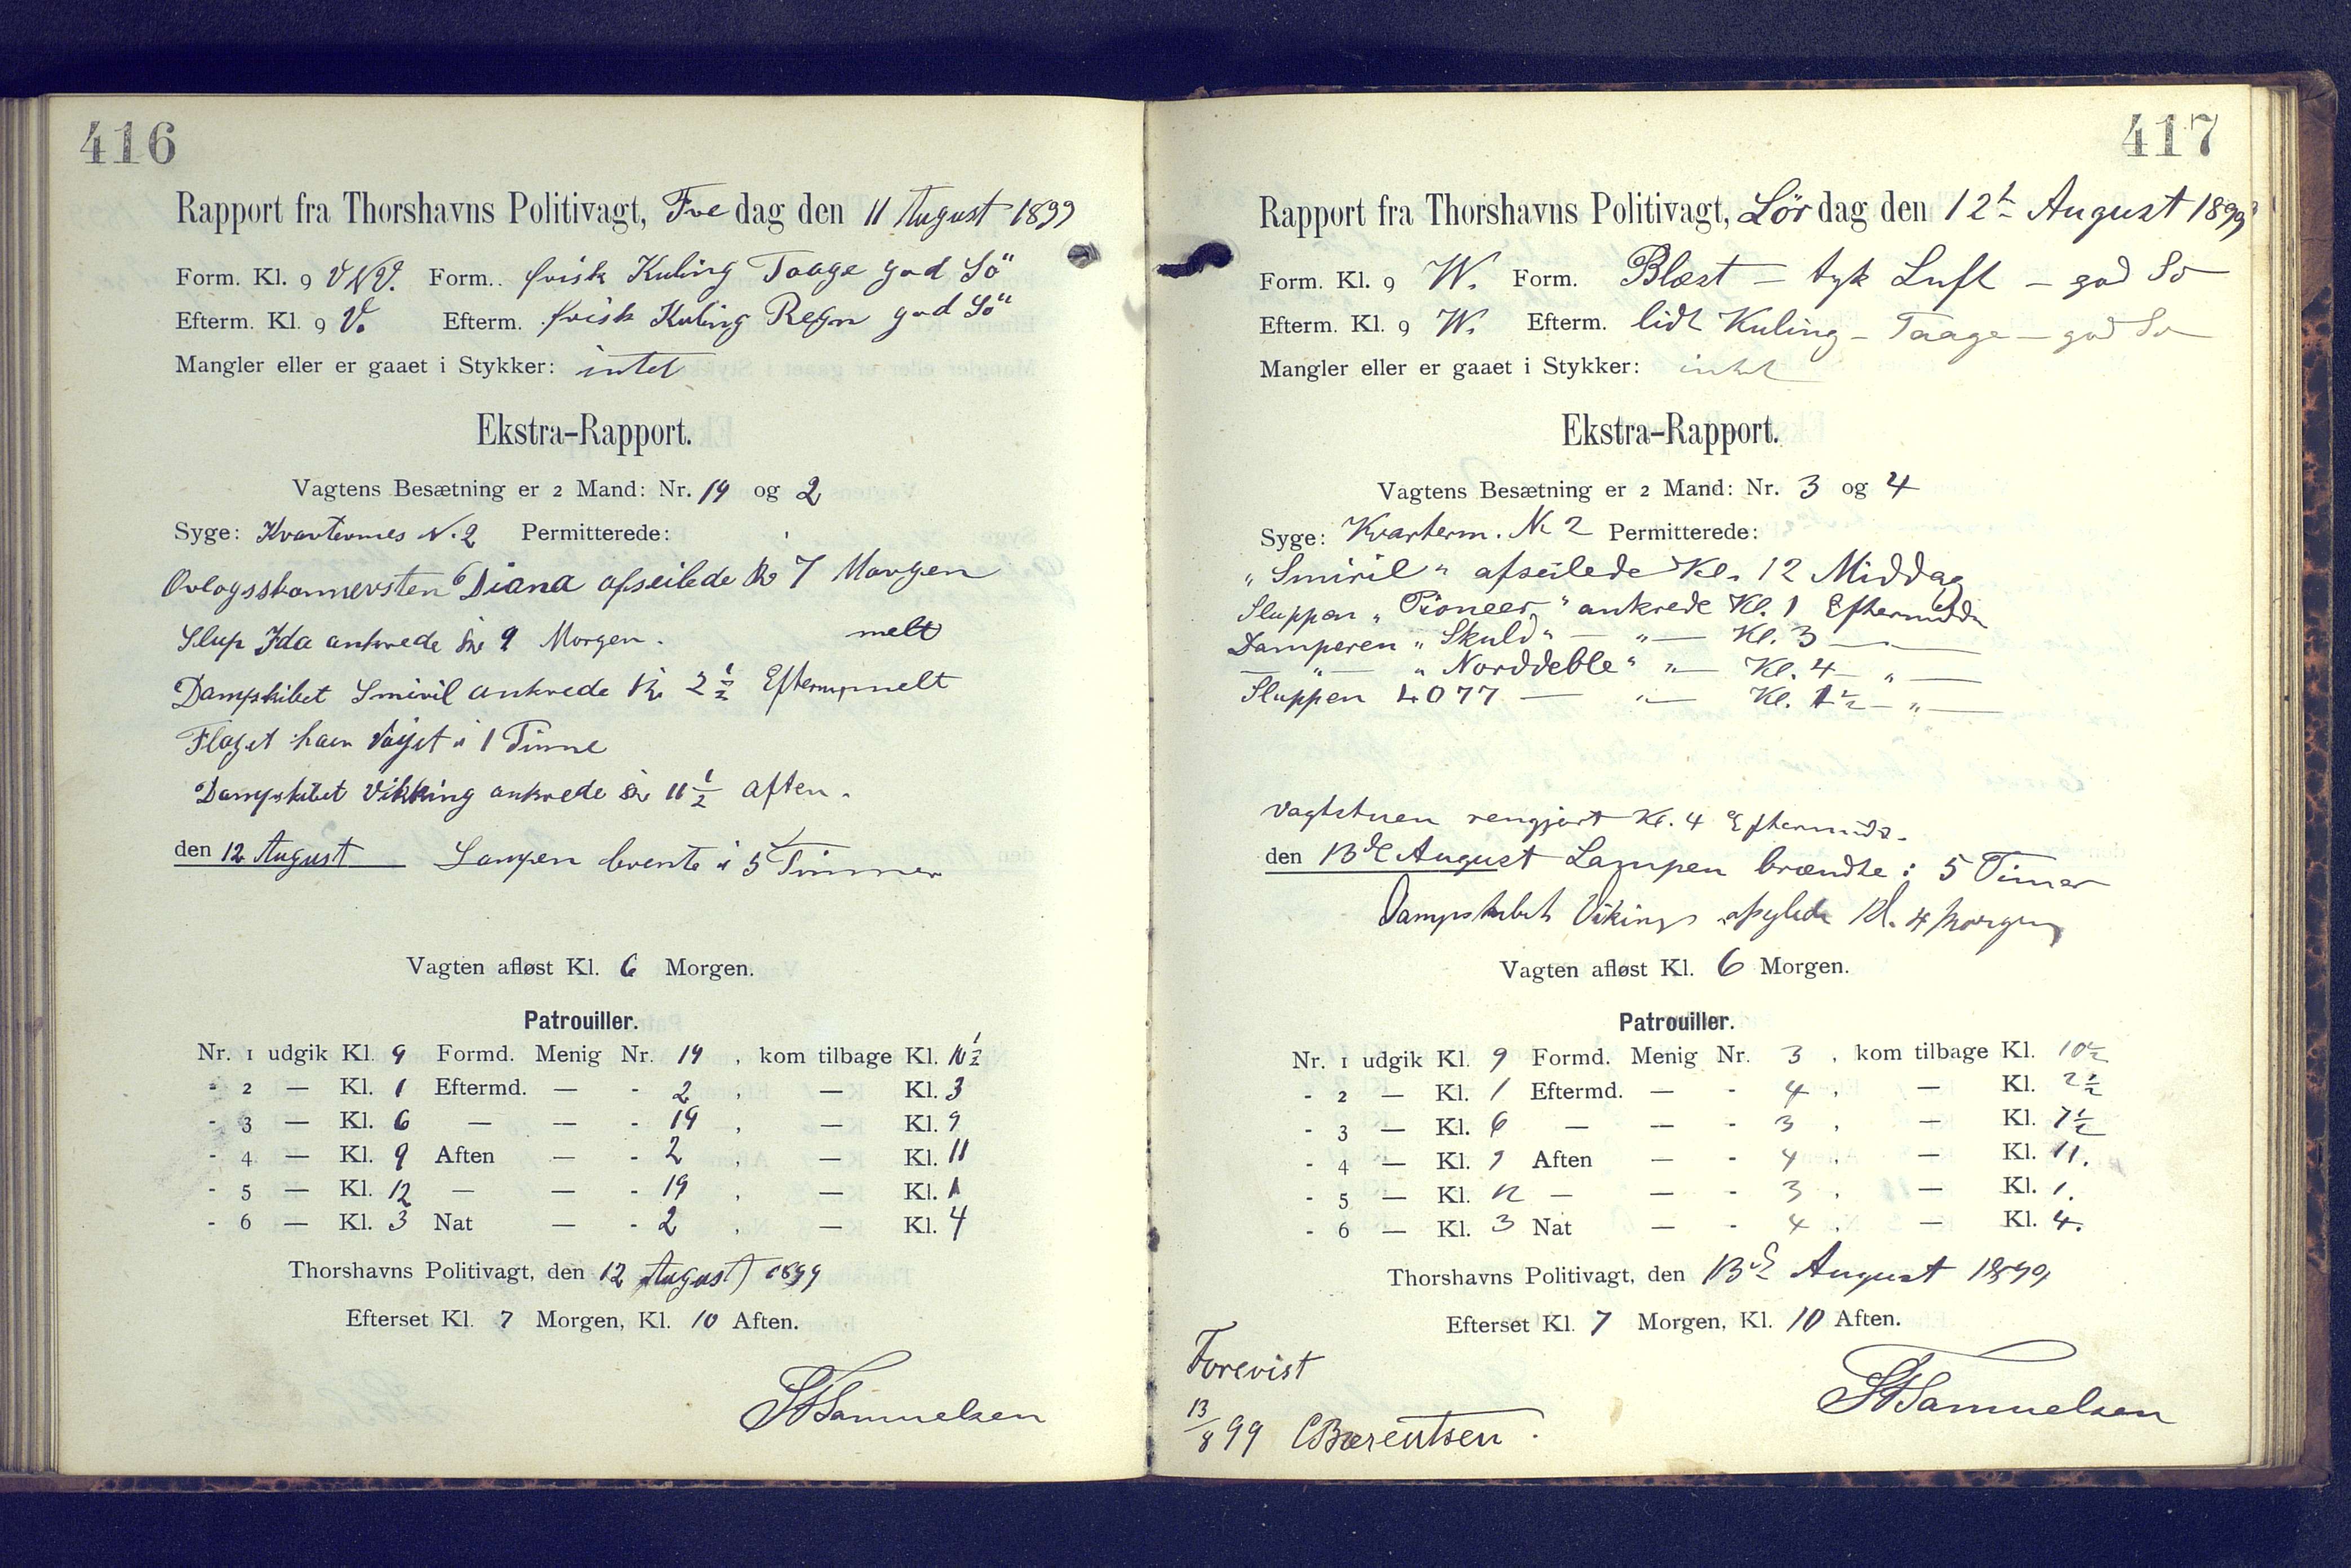 416
Rapport fra Thorshavns Politivagt, Fre dag den 11 August 1899
Form. Kl. 9 VNV. Form. frisk Kuling Taage god Sö
Efterm. Kl. 9 V. Efterm. frisk Kuling Regn god Sö
Mangler eller er gaaet i Stykker: intet
Ekstra-Rapport.
Vagtens Besætning er 2 Mand: Nr. 19 og 2
Syge: Kvartermes N. 2 Permitterede:
Orlogsskonnersten Diana afseilede Kl 7 Morgen
Slup Ida ankrede Kl 9 Morgen. melt
Dampskibet Smiril ankrede Kl 2 1/2 Efterm melt
Flaget har Vajet i 1 Time
Dampskibet Vikking ankrede Kl 11 1/2 aften.
den 12 August Lampen brente i 5 Timer
Vagten afløst Kl. 6 Morgen.
Patrouiller.
Nr. 1 udgik Kl. 9 Formd. Menig Nr. 19 , kom tilbage Kl. 10 1/2
- 2 — Kl. 1 Eftermd. — - 2 , — Kl. 3
- 3 — Kl. 6 — — - 19 , — Kl. 9
- 4 — Kl. 9 Aften — - 2 , — Kl. 11
- 5 — Kl. 12 — — - 19 , — Kl. 1
- 6 — Kl. 3 Nat — - 2 , — Kl. 4
Thorshavns Politivagt, den 12 August 1899
Efterset Kl. 7 Morgen, Kl. 10 Aften.
Samuelsen
417
Rapport fra Thorshavns Politivagt, Lör dag den 12te August 1899
Form. Kl. 9 W. Form. Blæst — tyk Luft — god So
Efterm. Kl. 9 W. Efterm. lidt Kuling — Taage — god So
Mangler eller er gaaet i Stykker: intet
Ekstra-Rapport.
Vagtens Besætning er 2 Mand: Nr. 3 og 4
Syge: Kvarterm. Nr 2 Permitterede:
"Smiril" afseilede Kl. 12 Middag
Sluppen "Pioneer" ankrede Kl. 1 Eftermidd
Damperen "Skuld" — " — Kl. 3 — " —
— " — "Norddeble" " — Kl. 4 — " —
Sluppen LO77 — " — Kl. 1 1/2 — " —
Vagtstuen rengjort Kl. 4 Eftermidd.
den 13de August Lampen brændte i 5 Timer
Dampskibet Viking afsejlede Kl. 4 Morgen
Vagten afløst Kl. 6 Morgen.
Patrouiller.
Nr. 1 udgik Kl. 9 Formd. Menig Nr. 3 , kom tilbage Kl. 10 1/2
- 2 — Kl. 1 Eftermd. — - 4 , — Kl. 2 1/2
- 3 — Kl. 6 — — - 3 , — Kl. 7 1/2
- 4 — Kl. 9 Aften — - 4 , — Kl. 11.
- 5 — Kl. 12 — — - 3 , — Kl. 1.
- 6 — Kl. 3 Nat — - 4 , — Kl. 4.
Thorshavns Politivagt, den 13de August 1899
Efterset Kl. 7 Morgen, Kl. 10 Aften.
Samuelsen
Forevist
13/8 99 CBærentsen.